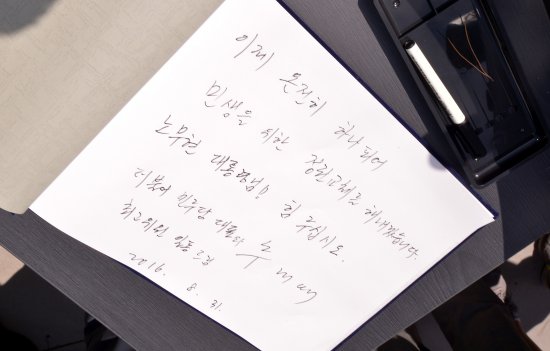 이제 온전히 하나 되어
민생을 위한 정권교체를 해내겠습니다.
노무현 대통령님! 힘 주십시오.
더불어민주당 대표
최고위원 일동
2016. 8. 31.